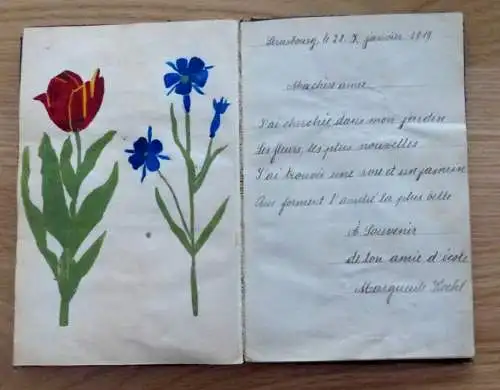 Strasbourg, le 28. janvier 1919
Ma chère amie
J'ai cherchée dans mon jardin
Les fleurs, les plus nouvelles
J'ai trouvée une rose et un jasmin
Qui forment l'amitié la plus belle
A Souvenir
de ton amie d'école
Marguerite